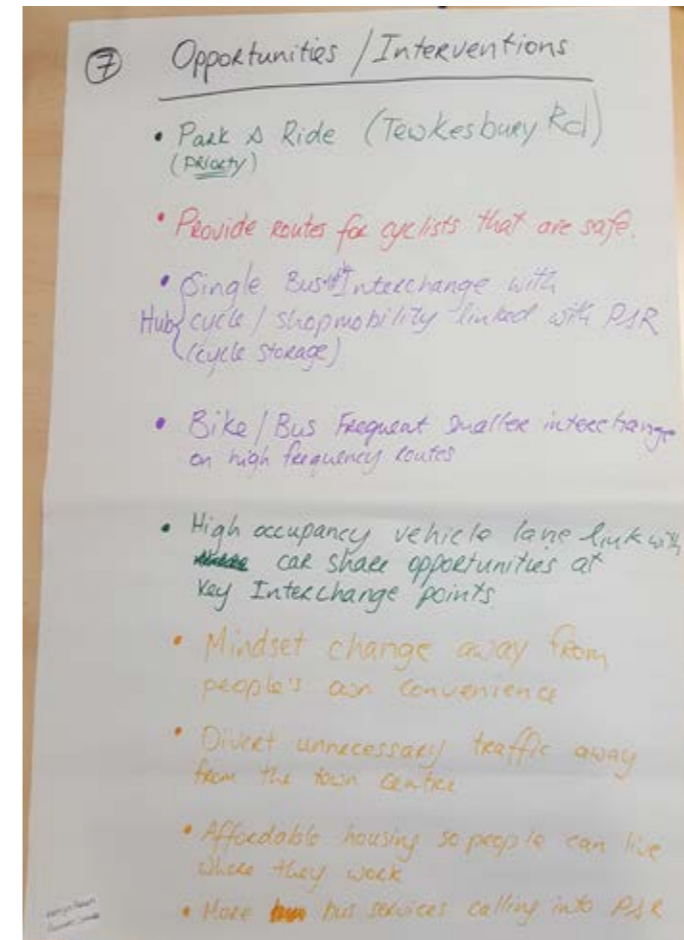 7 Opportunities / Interventions
• Park & Ride (Tewkesbury Rd)
(Priority)
• Provide routes for cyclists that are safe.
• Single Bus Interchange with
Hub { cycle / shopmobility linked with P&R
(cycle storage)
• Bike / Bus Frequent smaller interchange
on high frequency routes
• High occupancy vehicle lane link with
car share opportunities at
key Interchange points
• Mindset change away from
people's own convenience
• Divert unnecessary traffic away
from the town centre
• Affordable housing so people can live
where they work
• More bus services calling into P&R